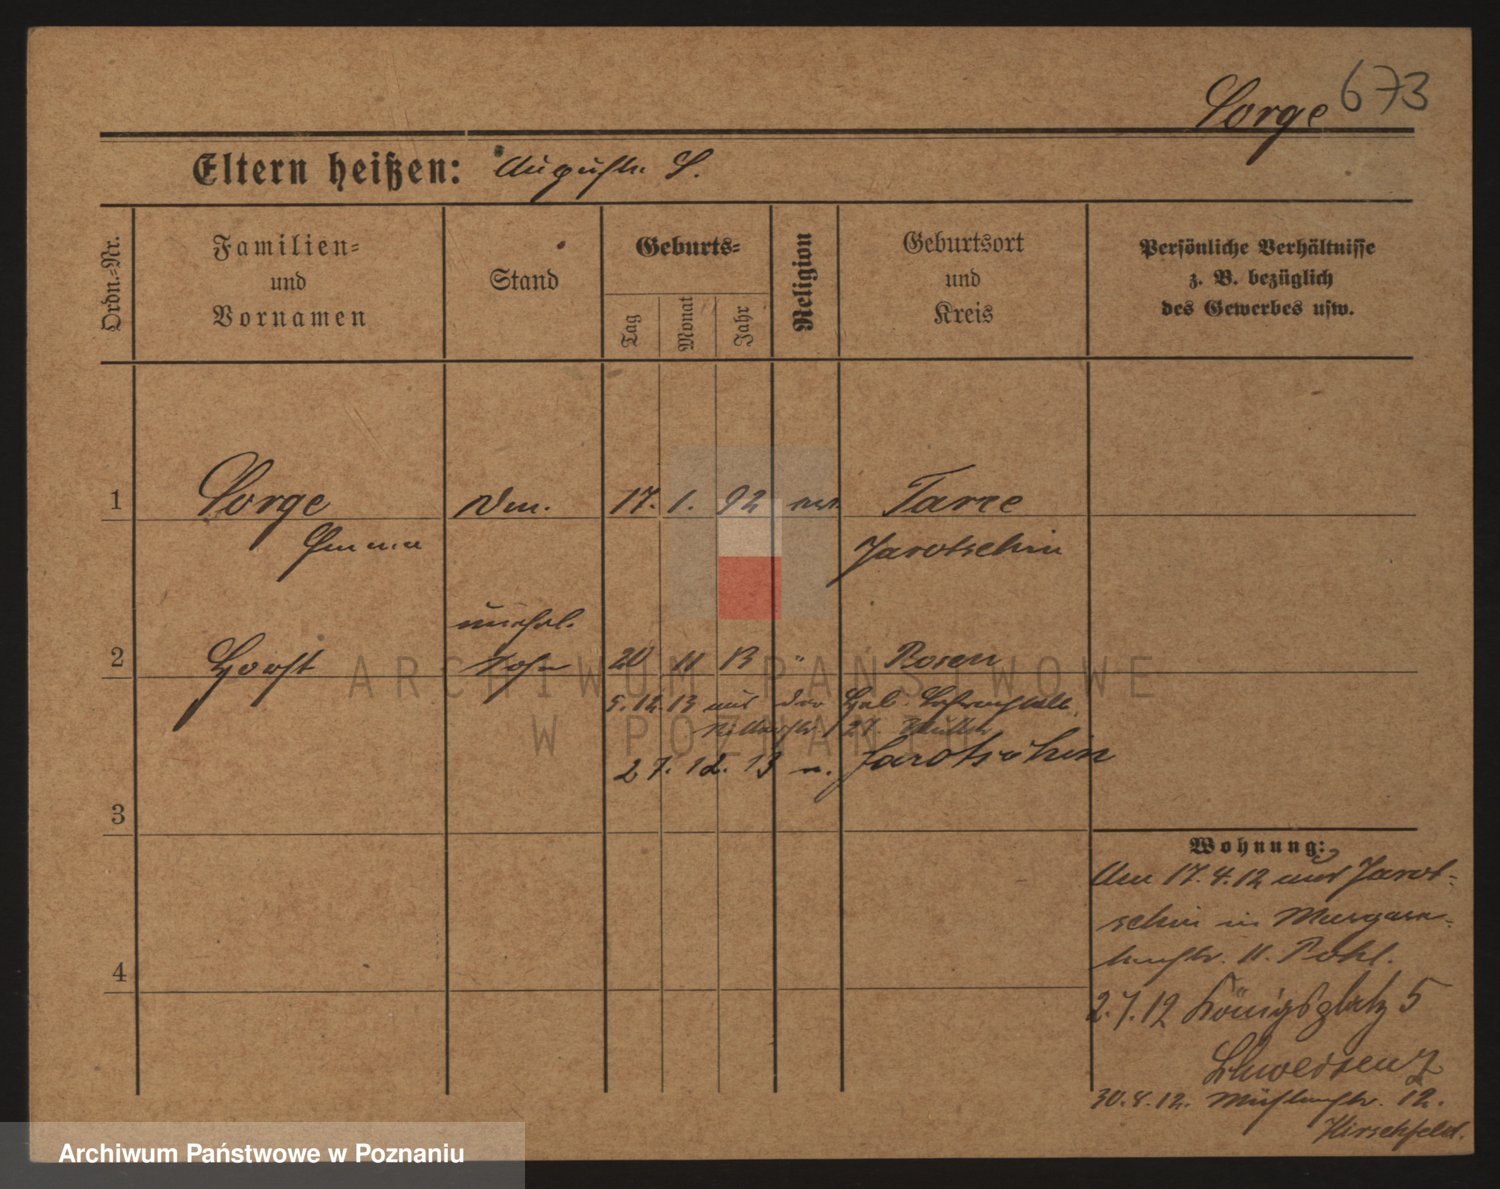 Sorge 673
Eltern heißen: Auguste S.
Ordn.-Nr.
Familien-
und
Vornamen
Stand
Geburts-
Tag
Monat
Jahr
Religion
Geburtsort
und
Kreis
Persönliche Verhältnisse
z. B. bezüglich
des Gewerbes usw.
1 Sorge 17. 1. 92 Tarce
Emma Jarotschin
unehel.
2 Horst Sohn 20 11 13 " Posen
5.12.13 aus der Heb. Lehranstalt
27
27.12.13 n. Jarotschin
3
Wohnung:
Am 17.4.12 aus Jarot-
schin in Margare-
tenstr. 11. Pohl.
4
2.7.12 Königsplatz 5
Schwersenz
30.8.12. Mühlenstr. 12.
Hirschfeld.
ARCHIWUM PAŃSTWOWE
W POZNANIU
Archiwum Państwowe w Poznaniu